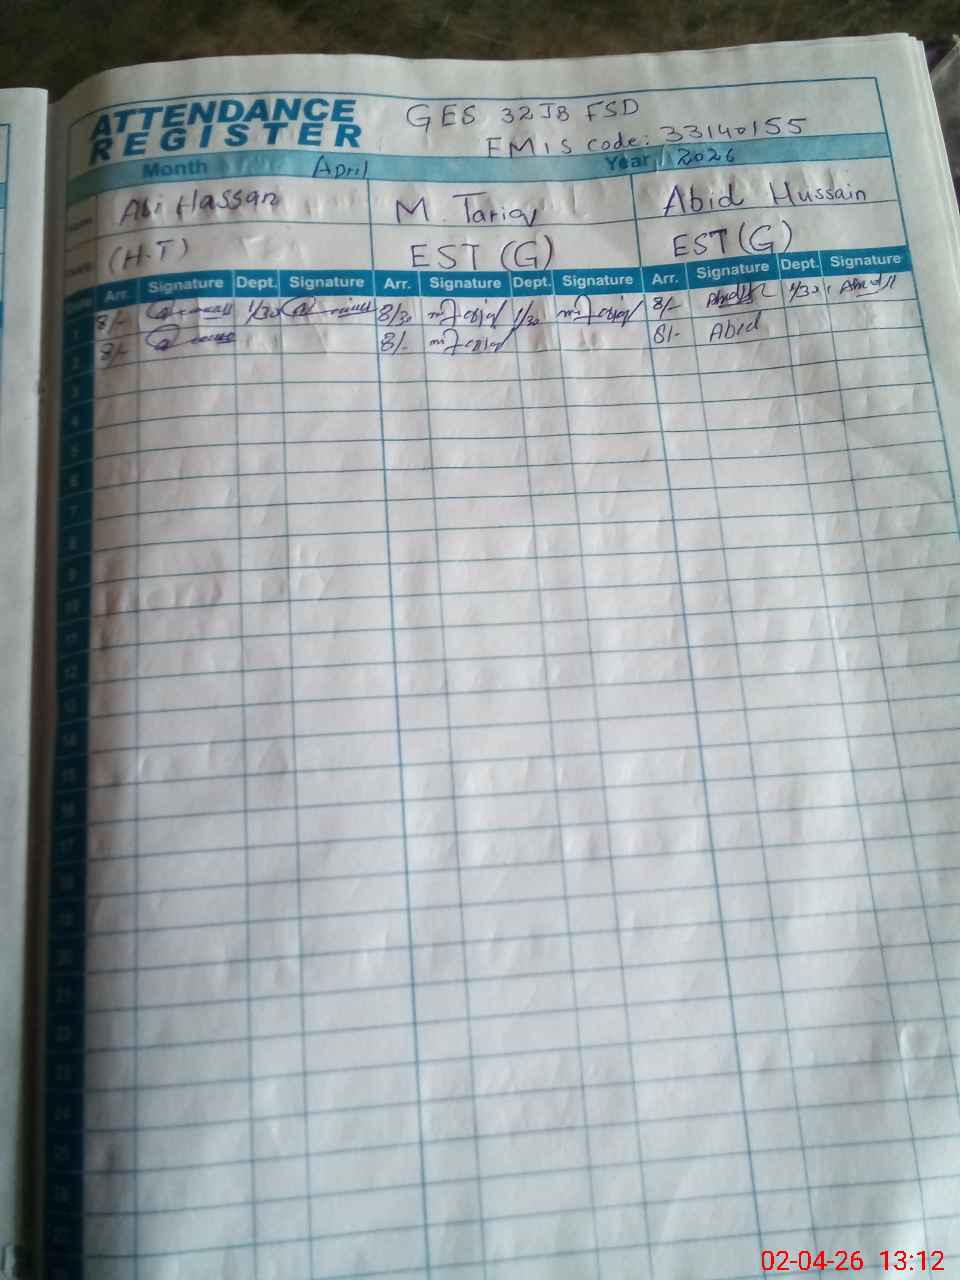 ATTENDANCE
REGISTER
GES 32JB FSD
EMIS code: 33140155
Month April Year 2026
Abi Hassan M. Tariq Abid Hussain
(H.T) EST (G) EST (G)
Arr. Signature Dept. Signature Arr. Signature Dept. Signature Arr. Signature Dept. Signature
1 8/- 1/30 8/30 1/30 8/- 1/30
2 8/- 8/- 8/- Abid
3
4
5
6
7
8
9
10
11
12
13
14
15
16
17
18
19
20
21
22
23
24
25
26
27
02-04-26 13:12